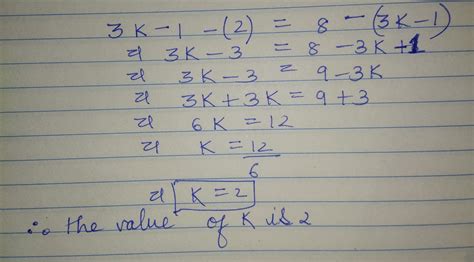 3K - 1 - (2) = 8 - (3K-1)
3K - 3 = 8 - 3K + 1
3K - 3 = 9 - 3K
3K + 3K = 9 + 3
6K = 12
K = 12/6
K = 2
∴ the value of K is 2